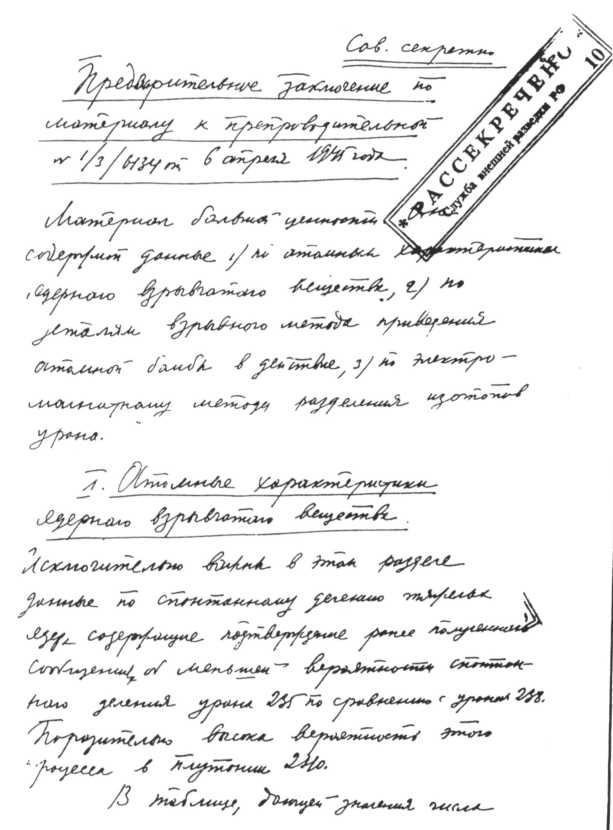 Сов. секретно
Предварительное заключение по
материалу к препроводительной
№ 1/3/6134 от 6 апреля 1945 года.
* РАССЕКРЕЧЕНО 10
Служба внешней разведки РФ
Материал большой ценности. Он
содержит данные 1) по атомным характеристикам
ядерного взрывчатого вещества, 2) по
деталям взрывного метода приведения
атомной бомбы в действие, 3) по электро-
магнитному методу разделения изотопов
урана.
I. Атомные характеристики
ядерного взрывчатого вещества.
Исключительно важны в этом разделе
данные по спонтанному делению тяжелых
ядер, содержащие подтверждение ранее полученного
сообщения о меньшей вероятности спонтан-
ного деления урана 235 по сравнению с ураном 238.
Поразительно высока вероятность этого
процесса в плутонии 240.
В таблице, дающей значения числа